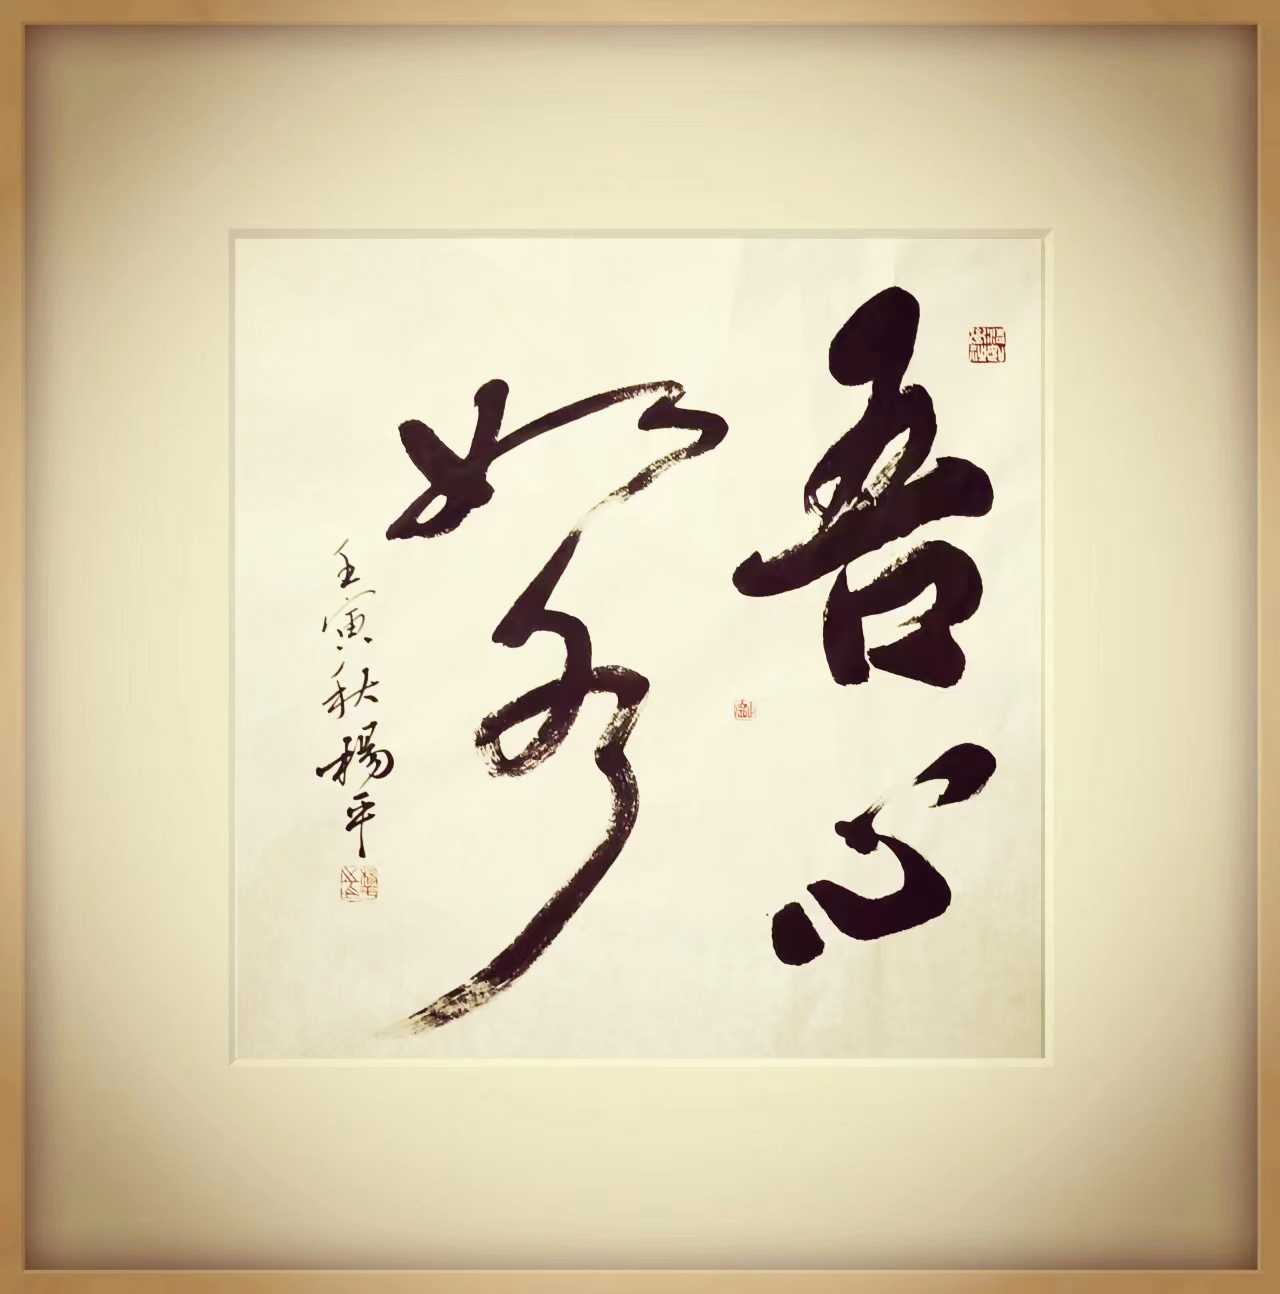 吾心
如初
壬寅秋楊平